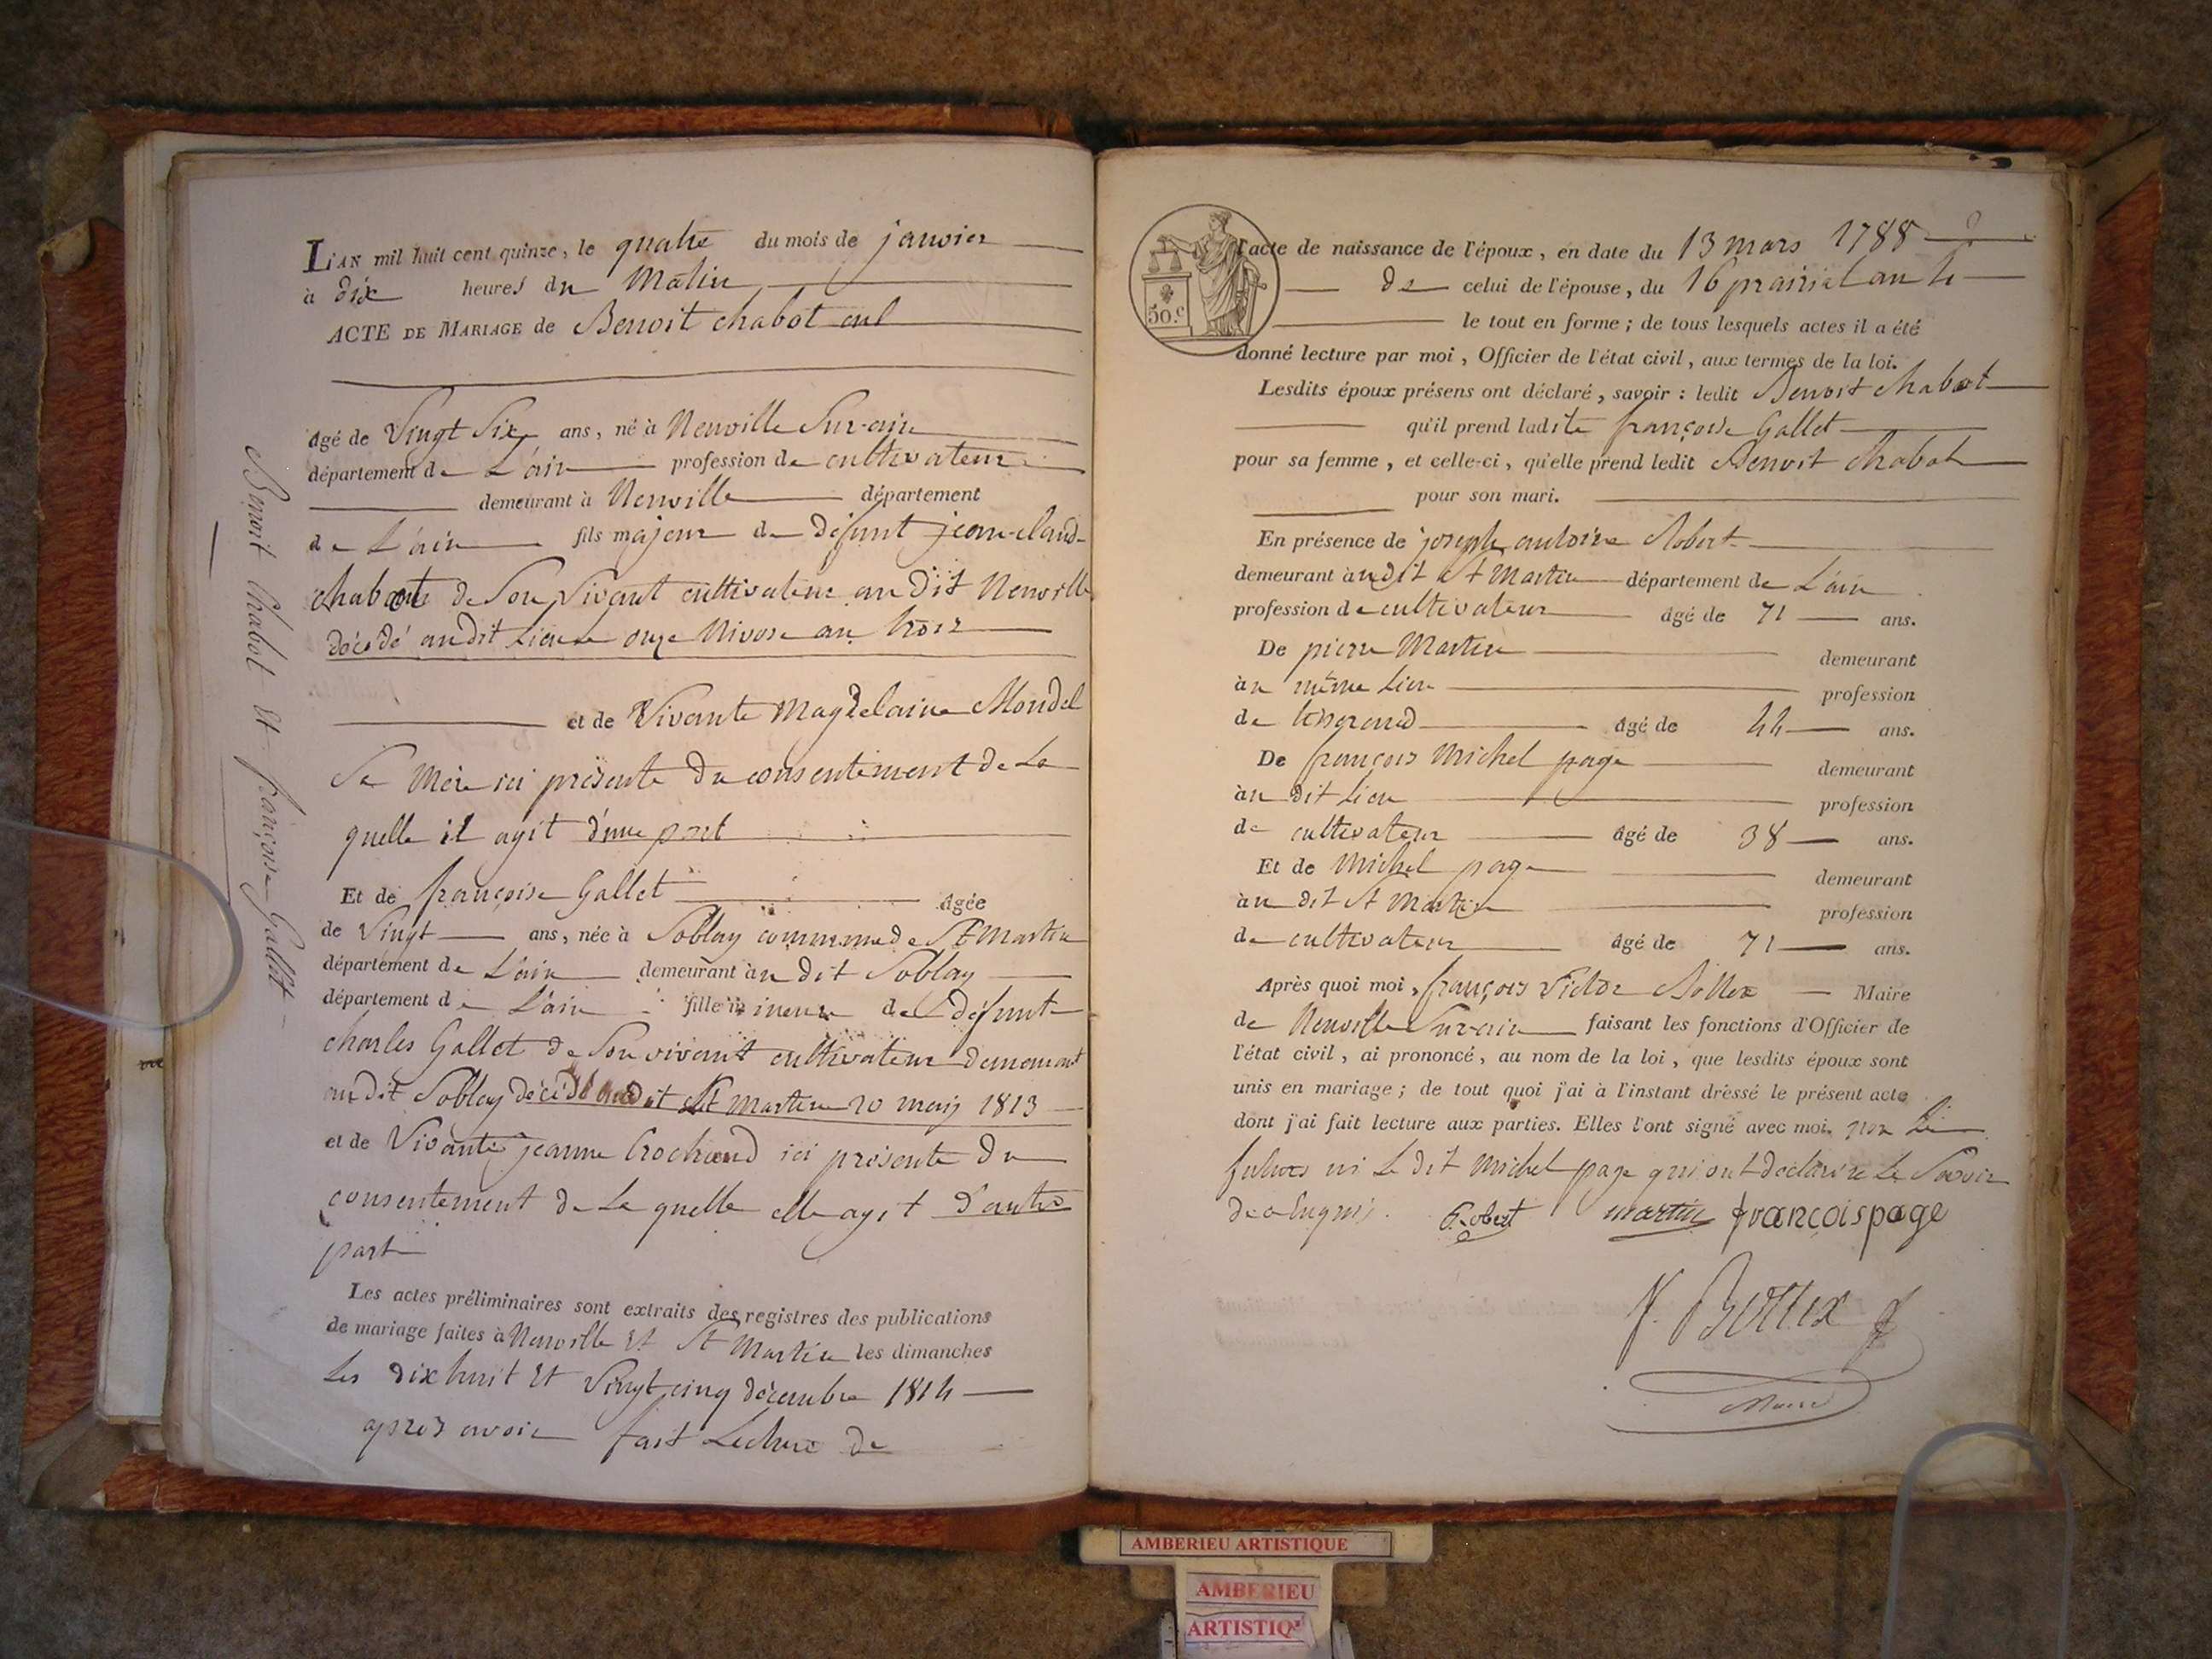 L'AN mil huit cent quinze, le quatre du mois de janvier
à dix heures du matin
ACTE DE MARIAGE de Benoit chabot cul
âgé de Vingt Six ans, né à Neuville Sur-ain
département de L'ain profession de cultivateur
demeurant à Neuville département
de L'ain fils majeur de défunt jean-claude
chabot de Son Vivant cultivateur au dit Neuville
décédé au dit Lieu le onze Nivose an trois
et de Vivante Magdelaine
Sa Mère ici présente du consentement de La
quelle il agit d'une part
Et de françoise Gallet âgée
de Vingt ans, née à Soblay commune de St Martin
département de L'ain demeurant au dit Soblay
département de L'ain fille mineure de défunt
charles Gallet de Son vivant cultivateur demeurant
au dit Soblay décédé au dit St Martin 20 1813
et de Vivante jeanne Crochand ici présente du
consentement de La quelle elle agit d'autre
part
Les actes préliminaires sont extraits des registres des publications
de mariage faites à Neuville Et St Martin les dimanches
Les dix huit Et Vingt cinq décembre 1814
après avoir fait Lecture de
Benoit Chabot Et françoise Gallet
50.c
l'acte de naissance de l'époux, en date du 13 mars 1788
de celui de l'épouse, du 16 prairial an 2
le tout en forme ; de tous lesquels actes il a été
donné lecture par moi, Officier de l'état civil, aux termes de la loi.
Lesdits époux présens ont déclaré, savoir : ledit Benoit chabot
qu'il prend ladite françoise Gallet
pour sa femme, et celle-ci, qu'elle prend ledit Benoit chabot
pour son mari.
En présence de joseph antoine Robert
demeurant au dit St Martin département de L'ain
profession de cultivateur âgé de 71 ans.
De pierre Martin demeurant
au même Lieu profession
de tisserand âgé de 44 ans.
De françois Michel page demeurant
au dit Lieu profession
de cultivateur âgé de 38 ans.
Et de Michel page demeurant
au dit St Martin profession
de cultivateur âgé de 71 ans.
Après quoi moi, françois Victor Bottex Maire
de Neuville Sur ain faisant les fonctions d'Officier de
l'état civil, ai prononcé, au nom de la loi, que lesdits époux sont
unis en mariage ; de tout quoi j'ai à l'instant dressé le présent acte
dont j'ai fait lecture aux parties. Elles l'ont signé avec moi, non Les
futurs ni Le dit Michel page qui ont déclaré ne Le Savoir
de ce Enquis. Robert martin françoispage
f. Bottex
Maire
AMBERIEU ARTISTIQUE
AMBERIEU
ARTISTIQ